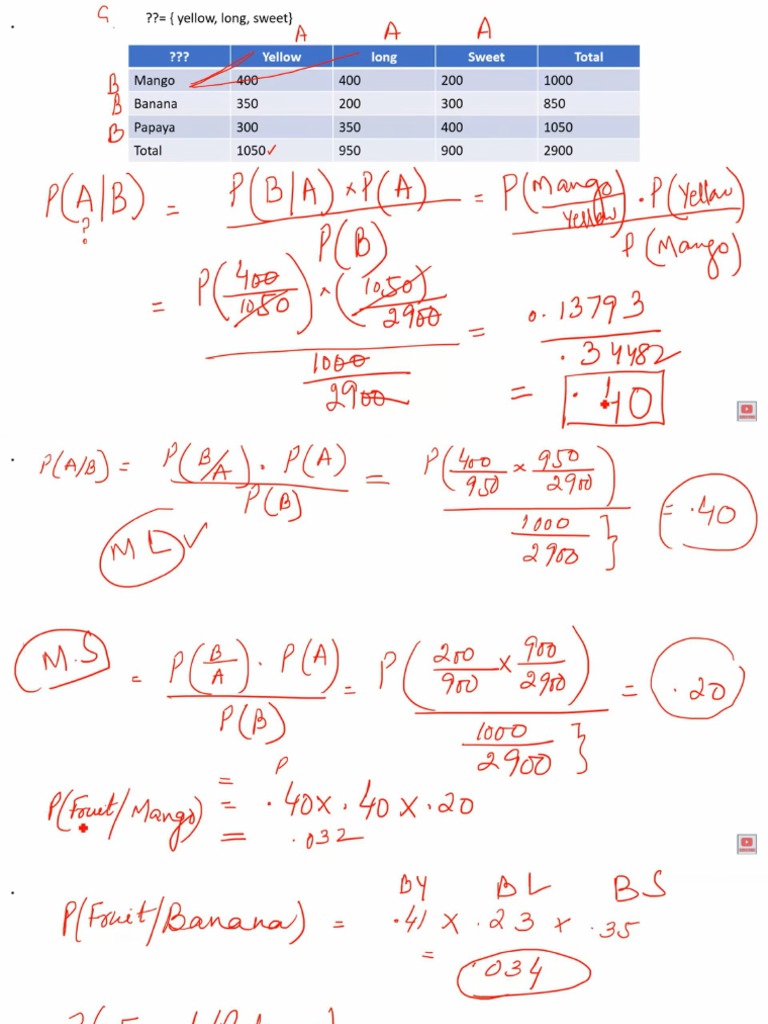 G. ??= { yellow, long, sweet}
A A A
??? Yellow long Sweet Total
B Mango 400 400 200 1000
B Banana 350 200 300 850
B Papaya 300 350 400 1050
Total 1050✓ 950 900 2900
P(A|B) = P(B|A) × P(A) / P(B) = P(Mango/Yellow) · P(Yellow) / P(Mango)
?
= P(400/1050) × (1050/2900) / 1000/2900 = 0.13793 / .34482
= .40
P(A/B) = P(B/A) · P(A) / P(B) = P(400/950 × 950/2900) / 1000/2900 } = .40
ML ✓
M.S = P(B/A) · P(A) / P(B) = P(200/900 × 900/2900) / 1000/2900 } = .20
= P
P(Fruit/Mango) = .40 × .40 × .20
= .032
BY BL BS
P(Fruit/Banana) = .41 × .23 × .35
= .034